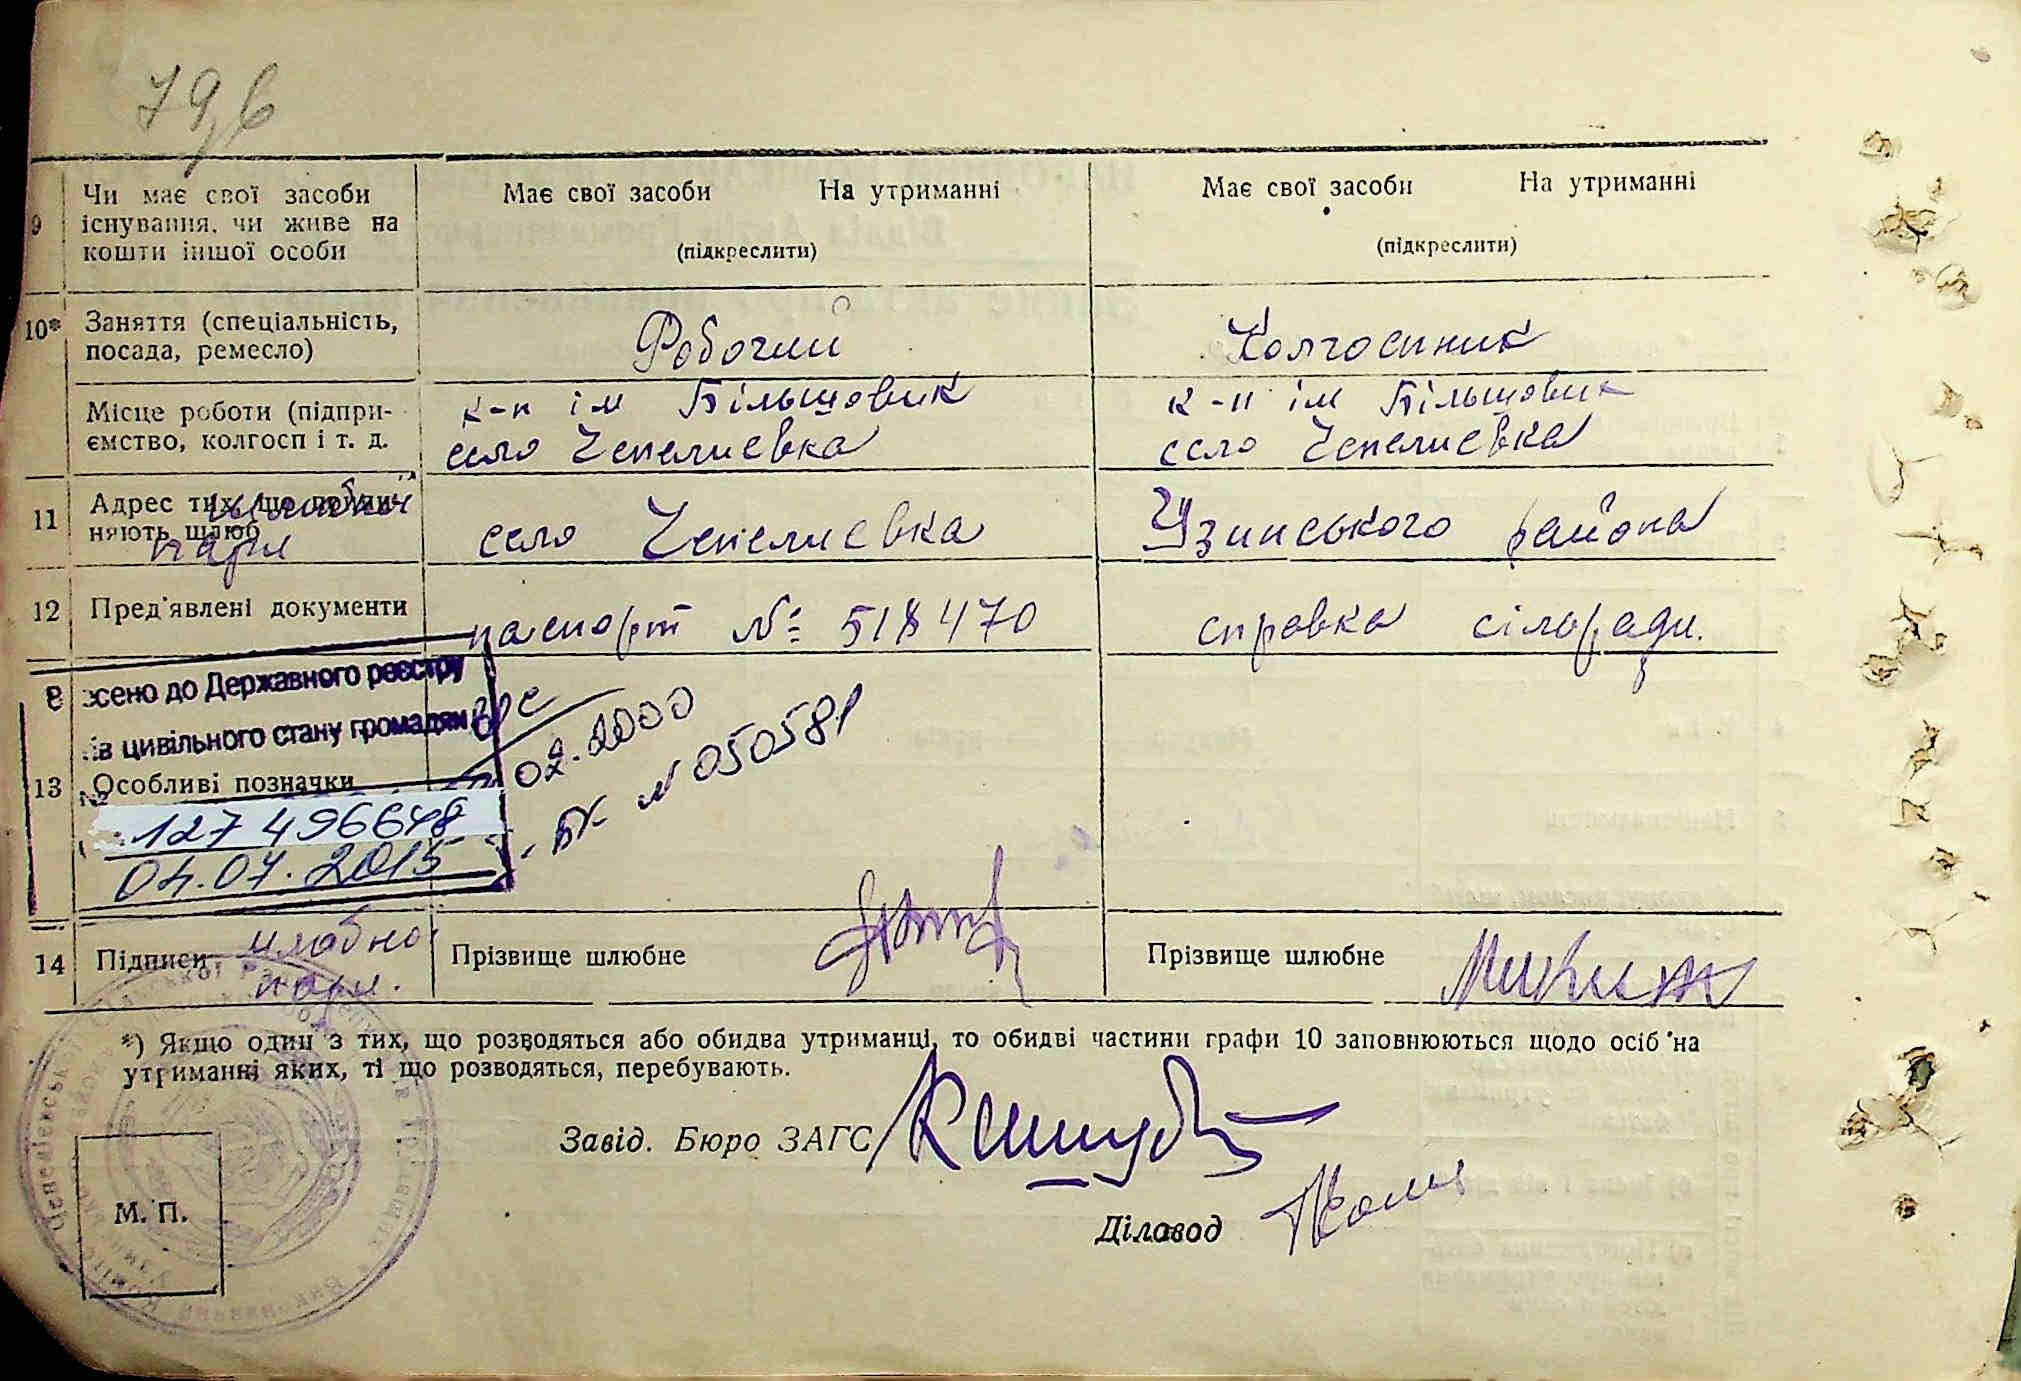 79,6
9 Чи має свої засоби існування, чи живе на кошти іншої особи
Має свої засоби На утриманні
(підкреслити)
Має свої засоби На утриманні
(підкреслити)
10* Заняття (спеціальність, посада, ремесло)
Робочий
Колгоспник
Місце роботи (підприємство, колгосп і т. д.
к-п ім Більшовик
село Чепелиевка
к-п ім Більшовик
село Чепелиевка
11 Адрес тих, що вчиняють шлюб
шлюбної пари
село Чепелиевка
Узинського района
12 Пред'явлені документи
паспорт № 518470
справка сільради.
сено до Державного реєстру
ів цивільного стану громадян
13 Особливі позначки
№ 127496648
04.07.2015
02.2000
БК № 050581
14 Підписи шлюбної пари.
Прізвище шлюбне
Прізвище шлюбне
*) Якщо один з тих, що розводяться або обидва утриманці, то обидві частини графи 10 заповнюються щодо осіб на
утриманні яких, ті що розводяться, перебувають.
Завід. Бюро ЗАГС
Діловод
М. П.